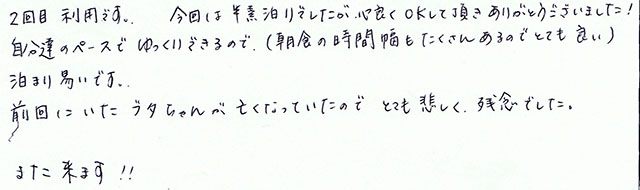 2回目 利用です。 今回は 半素泊りでしたが、心良くOKして頂きありがとうございました!
自分達のペースで ゆっくりできるので、(朝食の時間幅もたくさんあるのでとても良い)
泊まり易いです。
前回にいた ブタちゃんが 亡くなっていたので とても悲しく、残念でした。
また 来ます!!